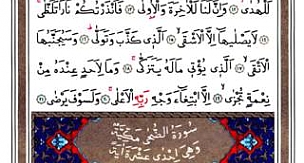 لَلْهُدٰىۘ ﴿١٢﴾ وَاِنَّ لَنَا لَلْاٰخِرَةَ وَالْاُولٰى ﴿١٣﴾ فَاَنْذَرْتُكُمْ نَارًا تَلَظّٰىۚ ﴿١٤﴾
لَا يَصْلٰيهَٓا اِلَّا الْاَشْقٰىۙ ﴿١٥﴾ اَلَّذ۪ي كَذَّبَ وَتَوَلّٰىۜ ﴿١٦﴾ وَسَيُجَنَّبُهَا
الْاَتْقٰىۙ ﴿١٧﴾ اَلَّذ۪ي يُؤْت۪ي مَالَهُ يَتَزَكّٰىۚ ﴿١٨﴾ وَمَا لِاَحَدٍ عِنْدَهُ مِنْ
نِعْمَةٍ تُجْزٰىۙ ﴿١٩﴾ اِلَّا ابْتِغَٓاءَ وَجْهِ رَبِّهِ الْاَعْلٰىۚ ﴿٢٠﴾ وَلَسَوْفَ يَرْضٰى ﴿٢١﴾
سُورَةُ الضُّحٰى مَكِّيَّةٌ
وَهِيَ اِحْدٰى عَشْرَةَ اٰيَةً